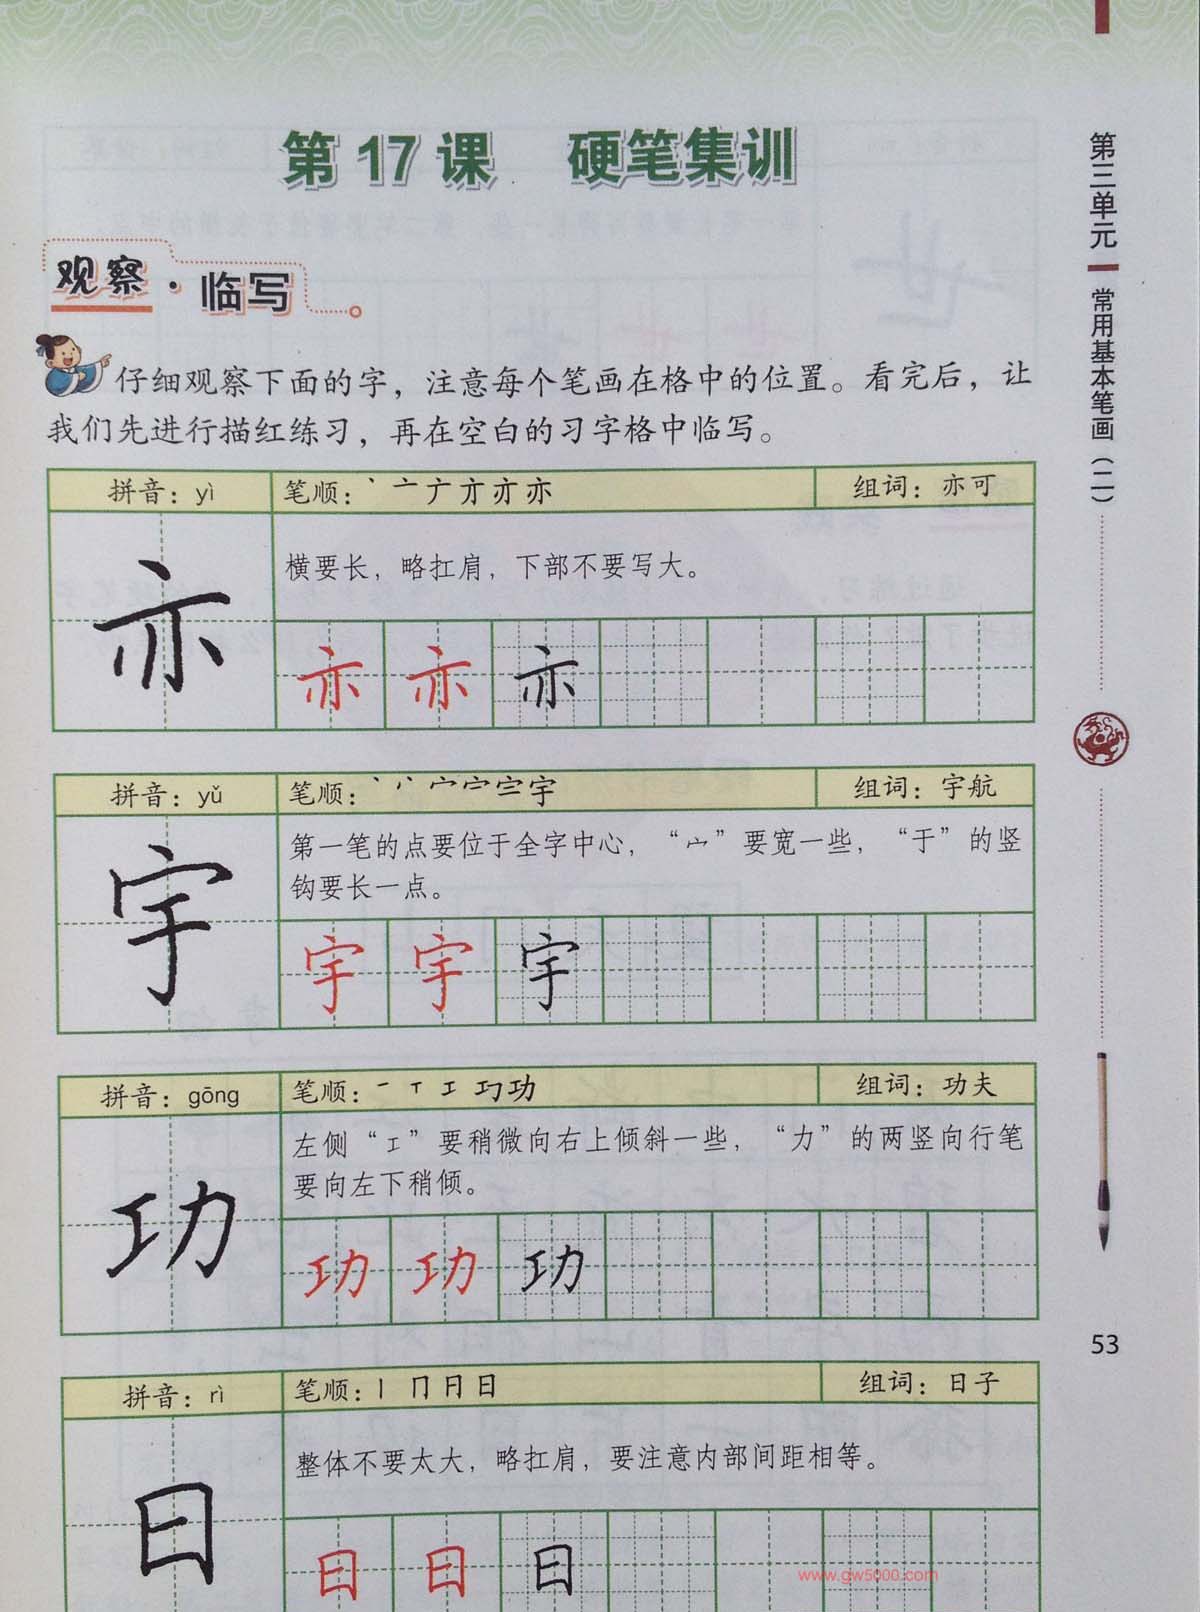 第17课 硬笔集训
观察·临写
仔细观察下面的字，注意每个笔画在格中的位置。看完后，让
我们先进行描红练习，再在空白的习字格中临写。
拼音：yì 笔顺： 组词：亦可
亦
横要长，略扛肩，下部不要写大。
亦 亦 亦
拼音：yǔ 笔顺： 组词：宇航
宇
第一笔的点要位于全字中心，“宀”要宽一些，“于”的竖
钩要长一点。
宇 宇 宇
拼音：gōng 笔顺： 组词：功夫
功
左侧“工”要稍微向右上倾斜一些，“力”的两竖向行笔
要向左下稍倾。
功 功 功
拼音：rì 笔顺：丨 冂 月 日 组词：日子
日
整体不要太大，略扛肩，要注意内部间距相等。
日 日 日
第三单元 常用基本笔画（二）
53
www.gw5000.com